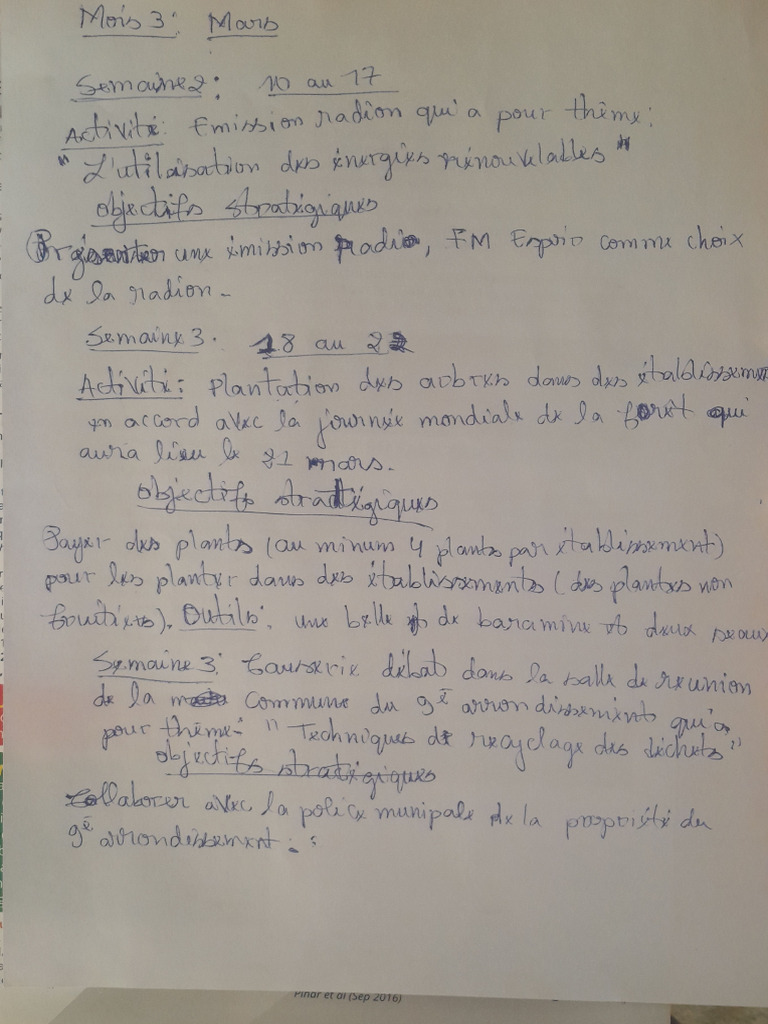 Mois 3: Mars
Semaine 2: 10 au 17
Activité: Emission radion qui a pour thème:
"L'utilisation des énergies rénouvelables"
objectifs stratégiques
Présenter une émission radio, FM comme choix
de la radion -
Semaine 3. 18 au 22
Activité: plantation des aobres dans des établissement
en accord avec la journée mondiale de la forêt qui
aura lieu le 21 mars.
objectifs stratégiques
Payer des plants (au minum 4 plants par établissement)
pour les planter dans des établissements (des plantes non
fruitières). Outils: une belle et de baramine et deux seaux
Semaine 3: Causerie débat dans la salle de reunion
de la commune du 9è arrondissement qui a
pour thème: "Techniques de recyclage des déchets"
objectifs stratégiques
Collaborer avec la police munipale de la propriété du
9è arrondissement. :
Pinar et al (Sep 2016)